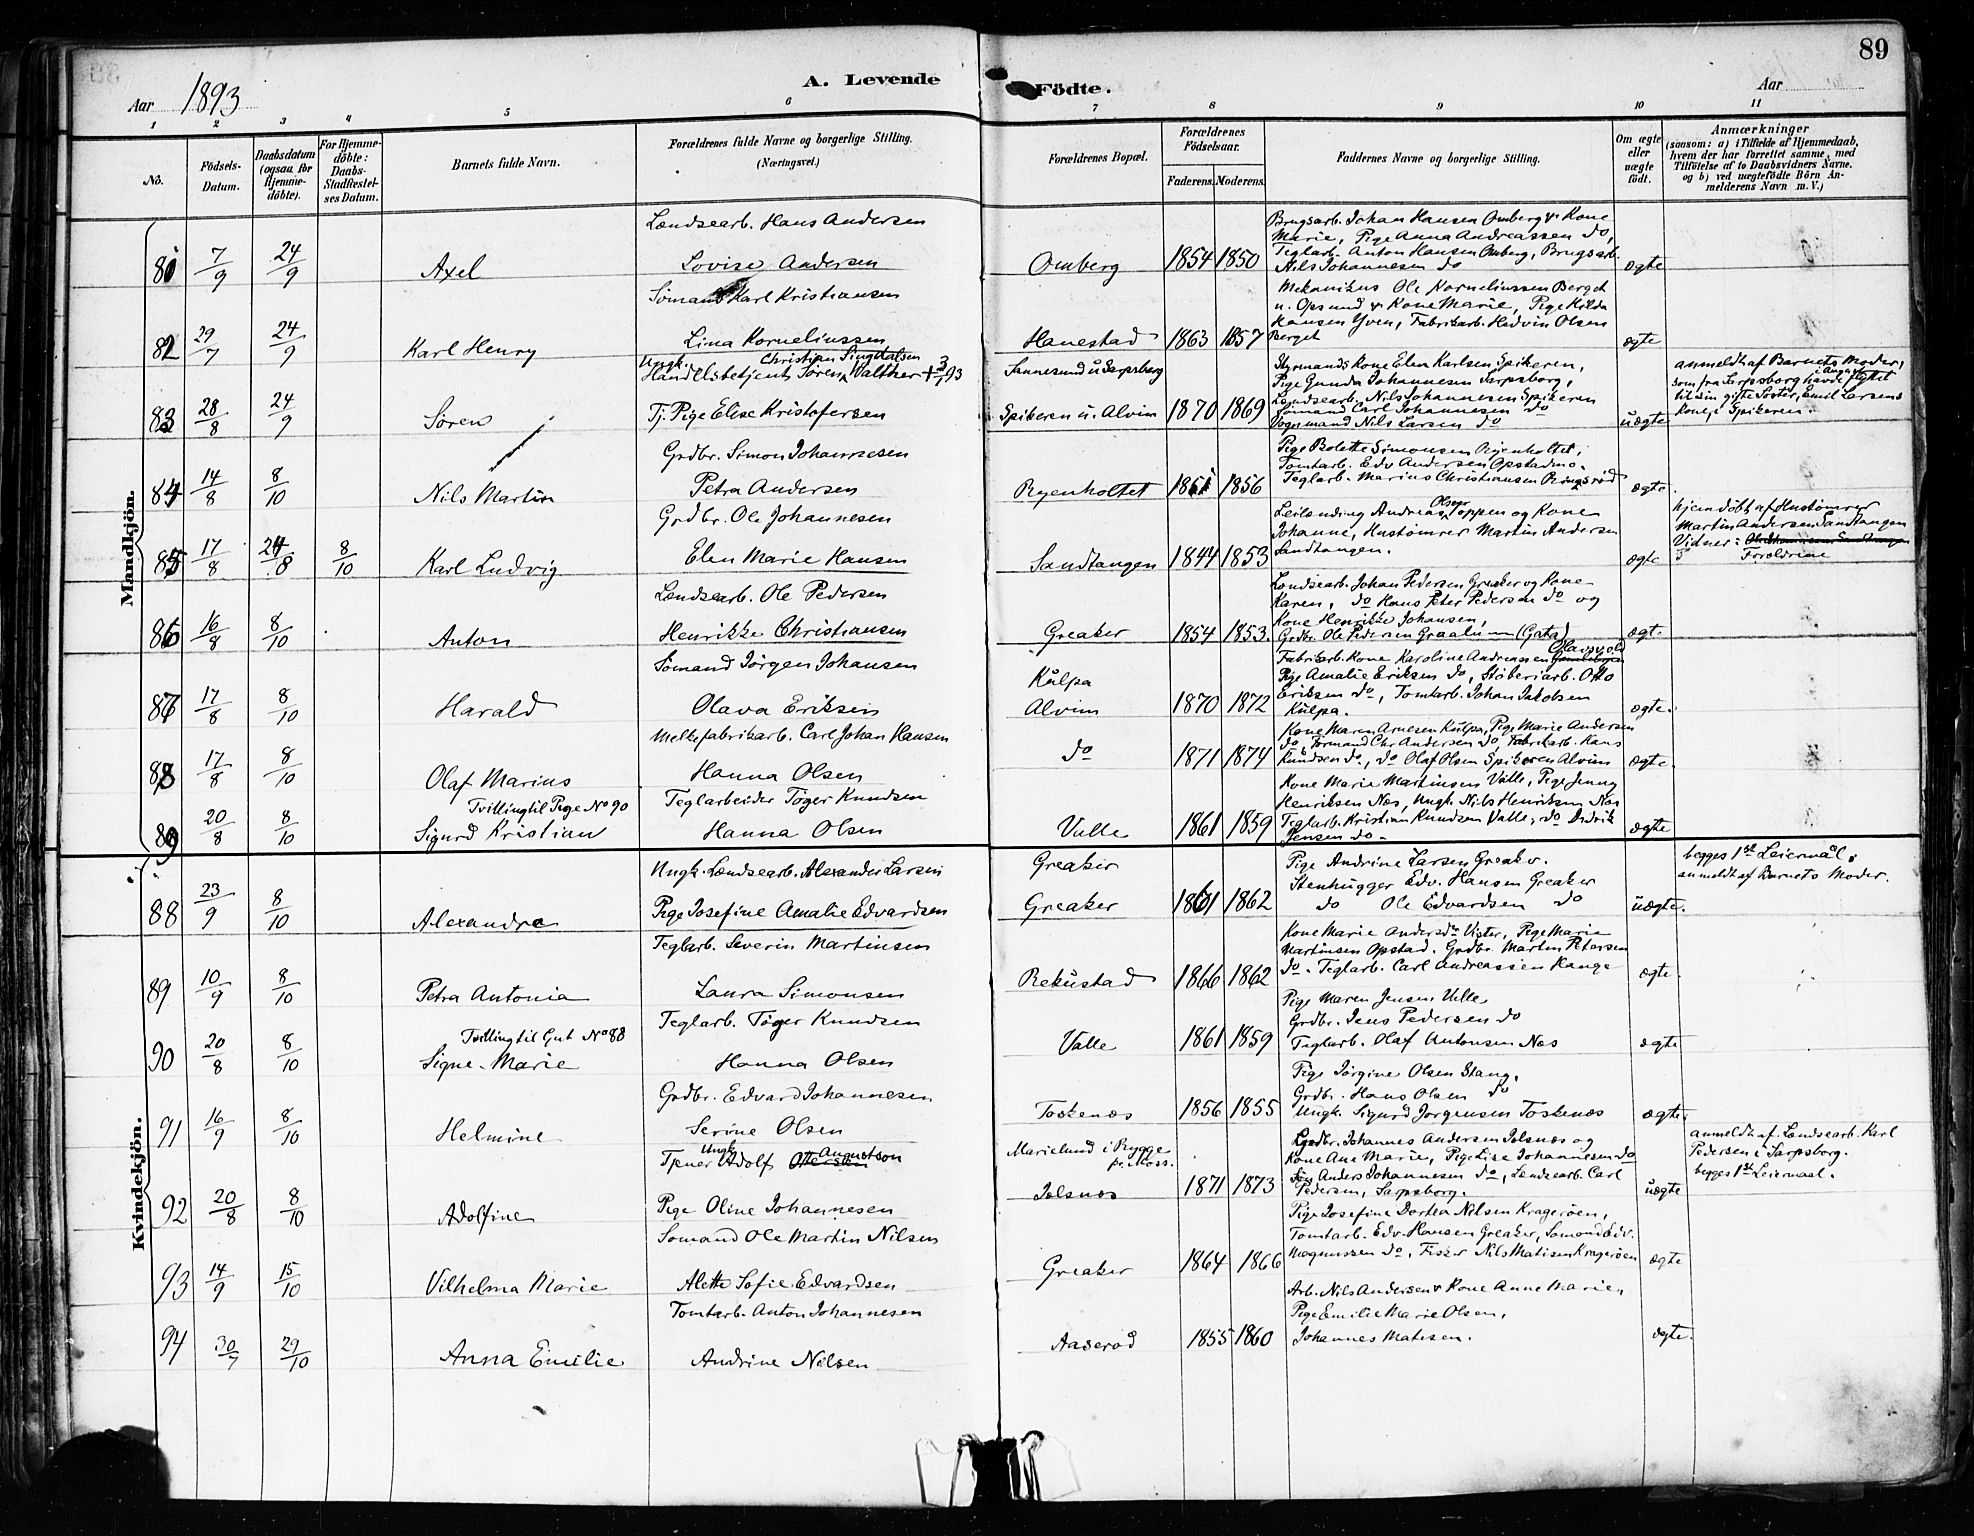 89
Aar 1893
A. Levende
Födte.
Aar
1 2 3 4 5 6 7 8 9 10 11
No.
Födsels-Datum.
Daabsdatum (ogsaa for Hjemme-döbte).
For Hjemme-döbte: Daabs-Stadfæstel-ses Datum.
Barnets fulde Navn.
Forældrenes fulde Navne og borgerlige Stilling. (Næringsvei.)
Forældrenes Bopæl.
Forældrenes Födselsaar.
Faderens. Moderens.
Faddernes Navne og borgerlige Stilling.
Om ægte eller uægte födt.
Anmærkninger
(saasom: a) i Tilfælde af Hjemmedaab, hvem der har forrettet samme, med Tilföielse af to Daabsvidners Navne. og b) ved uægtefödte Börn Anmelderens Navn m. V.)
Mandkjön.
Lændsearb. Hans Andersen
Lovise Andersen
7/9 24/9 Axel
Omberg 1854 1850
Brugsarb. Johan Hansen Omberg & Kone
Marie, Pige Anna Andreassen do,
Teglarb. Anton Hansen Omberg, Brugsarb.
Nils Johannesen do
ægte
Sömand Karl Kristiansen
82 29/7 24/9 Karl Henry
Lina Korneliussen
Hanestad 1863 1857
Mekanikus Ole Korneliussen Berget
u. Opsund & Kone Marie, Pige Hilda
Hansen Yven, Fabrikarb. Hedvin Olsen
Berget
ægte
Ungk. Christian Singdalsen
Handelsbetjent Sören Walther + 3/1 93
83 28/8 24/9 Sören
Tj. Pige Elise Kristofersen
Sannesund u Sarpsborg
Spikeren u. Alvim 1870 1869
Styrmands Kone Elen Karlsen, Spikeren,
Pige Gunda Johannesen Sarpsborg,
Lændsearb. Nils Johannesen Spikeren
Sömand Carl Johannesen do
Vognmand Nils Larsen do
uægte
anmeldt af Barnets Moder,
som fra Sarpsborg havde i August flyttet
til sin gifte Söster, Emil Larsens
Kone i Spikeren.
Grdbr. Simon Johannesen
84 14/8 8/10 Nils Martin
Petra Andersen
Ryenholtet 1856
Pige Bolette Simonsen Ryenholtet,
Tomtarb. Edv Andersen Opstadmo.
Teglarb. Marius Christiansen Ringsröd
ægte.
Grdbr. Ole Johannesen
85 17/8 8/10 Karl Ludvig
Elen Marie Hansen
Sandtangen 1844 1853
Leilænding Andreas Olsen Toppen og Kone
Johanne, Hustömrer Martin Andersen
Sandtangen.
ægte
hjemdöbt af Hustömrer
Martin Andersen Sandtangen
Vidner:
Forældrene
Lændsearb. Ole Pedersen
86 16/8 8/10 Anton
Henrikke Christiansen
Greaker 1854 1853.
Lændsearb. Johan Pedersen Greaker og Kone
Karen, do Hans Peter Pedersen do og
Kone Henrikke Johansen,
Grdbr. Ole Pedersen Graalum (Gata)
ægt.
Sömand Jörgen Johansen
87 17/8 8/10 Harald
Olava Eriksen
Kulpa
Alvim 1870 1872
Fabrikarb. Kone Karoline Andreassen Olavsvold
Pige Amalie Eriksen do, Stöberiarb. Otto
Eriksen do, Tomtarb. Johan Jakobsen
Kulpa.
ægte.
Melkefabrikarb. Carl Johan Hansen
88 17/8 8/10 Olaf Marius
Hanna Olsen
do 1871 1874
Kone Maren Arnesen Kulpa, Pige Marie Andersen
do Formand Chr. Andersen do, Fabrikarb. Hans
Knudsen do, do Olaf Olsen Spikeren Alvim
ægte.
Tvilling til Pige No 90
Teglarbeider Töger Knudsen
89 20/8 8/10 Sigurd Kristian
Hanna Olsen
Valle 1861 1859
Kone Marie Martinsen Valle, Pige Jenny
Henriksen Næs, Ungk. Nils Henriksen Næs
Teglarb. Kristian Knudsen Valle, do Didrik
Jensen do.
ægte
Kvindekjön.
Ungk. Lændsearb. Alexander Larsen
88 23/9 8/10 Alexandra
Pige Josefine Amalie Edvardsen
Greaker
Greaker 1861 1862
Pige Andrine Larsen Greaker.
Stenhugger Edv. Hansen Greaker
do Ole Edvardsen do
uægte.
begges 1st Leiermål.
anmeldt af Barnets Moder.
Teglarb. Severin Martinsen
89 10/9 8/10 Petra Antonia
Laura Simonsen
Rekustad 1866 1862
Kone Marie Andersdr Vister, Pige Marie
Martinsen Opstad. Grdbr. Martin Petersen
do. Teglarb. Carl Andreassen Hauge
ægte.
Tvilling til Gut No 88
Teglarb. Töger Knudsen
90 20/8 8/10 Signe Marie
Hanna Olsen
Valle 1861 1859
Pige Maren Jensen Valle
Grdbr. Jens Pedersen do
Teglarb. Olaf Antonsen Næs
ægte
Grdbr. Edvard Johannesen
91 16/9 8/10 Helmine
Serine Olsen
Toskenæs 1856 1855
Pige Jörgine Olsen Stang.
Grdbr. Hans Olsen do
Ungk. Sigurd Jörgensen Toskenæs
ægte.
Ungk.
Tjener Adolf Augustson
92 20/8 8/10 Adolfine
Pige Oline Johannesen
Marielund i Rygge
pr. Moss.
Jelsnæs 1871 1873
Grdbr. Johannes Andersen Jelsnæs og
Kone Ane Marie, Pige Lise Johannesen do
Sön Anders Johannesen do, Lændsearb. Carl
Pedersen, Sarpsborg.
uægte
anmeldt af Lændsearb. Karl
Pedersen i Sarpsborg.
begges 1st Leiermaal.
Sömand Ole Martin Nilsen
93 14/9 15/10 Vilhelma Marie
Alette Sofie Edvardsen
Greaker 1864 1866
Pige Josefine Dortea Nilsen Krageröen,
Tomtarb. Edv. Hansen Greaker, Sömand Edv.
Magnussen do, Fisker Nils Matisen Krageröen
ægte
Tomtarb. Anton Johannesen
94 30/7 29/10 Anna Emilie
Andrine Nilsen
Aaseröd 1855 1860
Arb. Nils Andersen & Kone Anne Marie,
Pige Emilie Marie Olsen,
Johannes Matisen.
ægte.